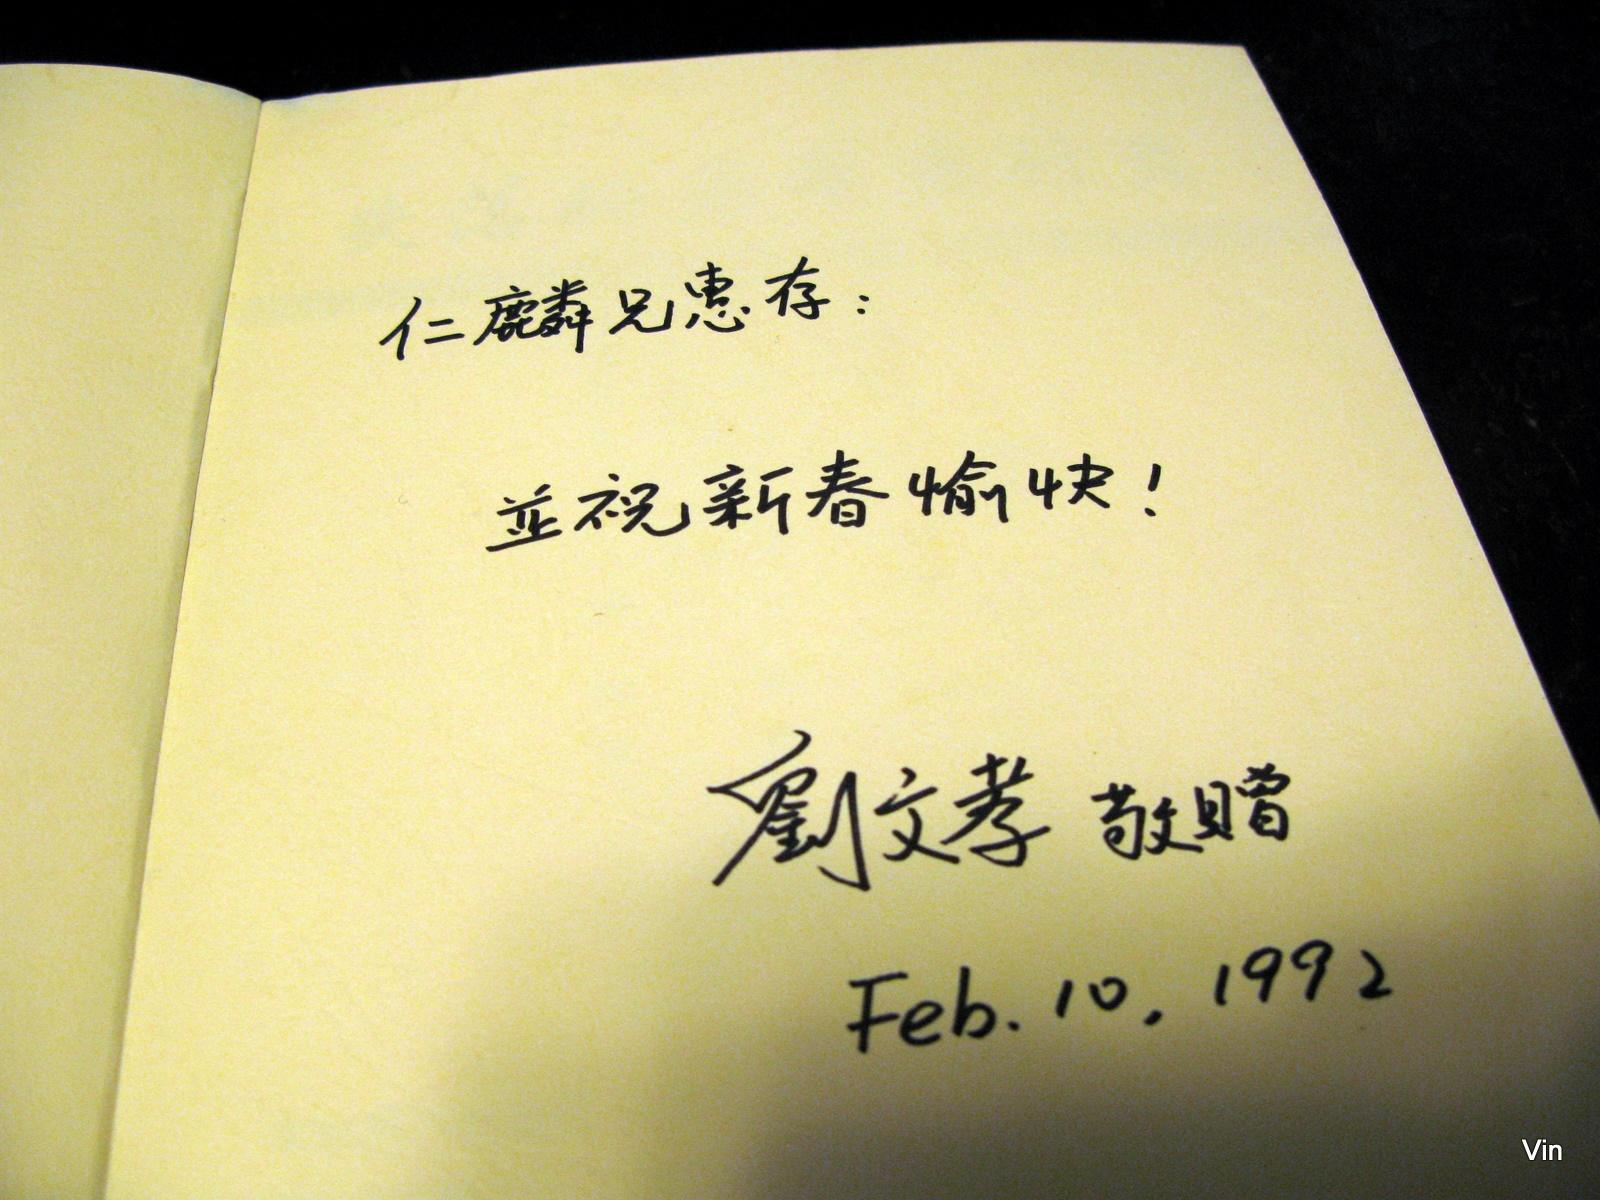 仁麟兄惠存：
並祝新春愉快！
劉文孝 敬贈
Feb. 10, 1992
Vin